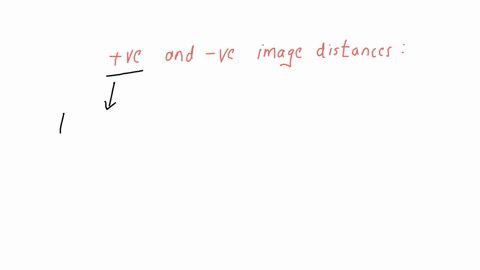 +ve and -ve image distances :